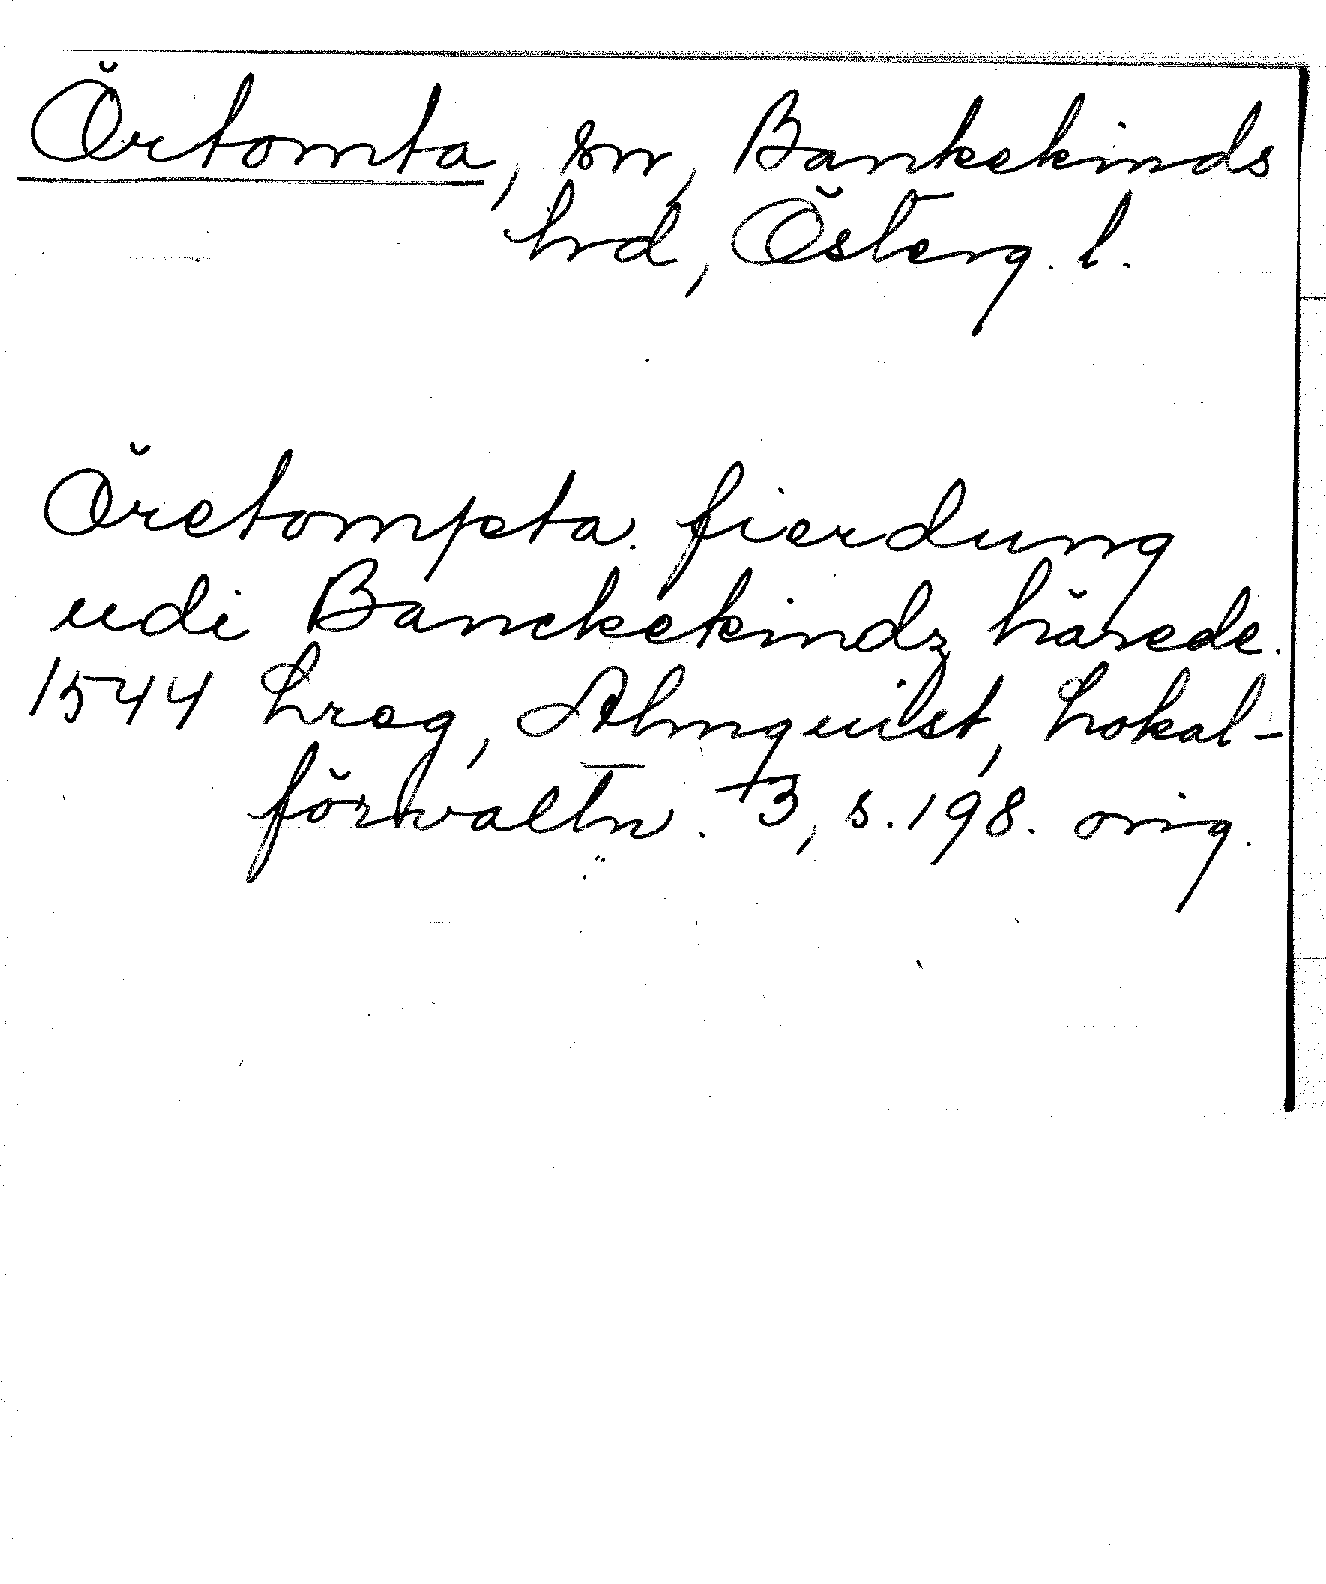 Örtomta, sn, Bankekinds
hrd, Österg. l.
Öretompta fierdung
udi Banckekindz härede.
1544 Lreg, Almquist, Lokal-
förvaltn. 3, s. 198. orig.